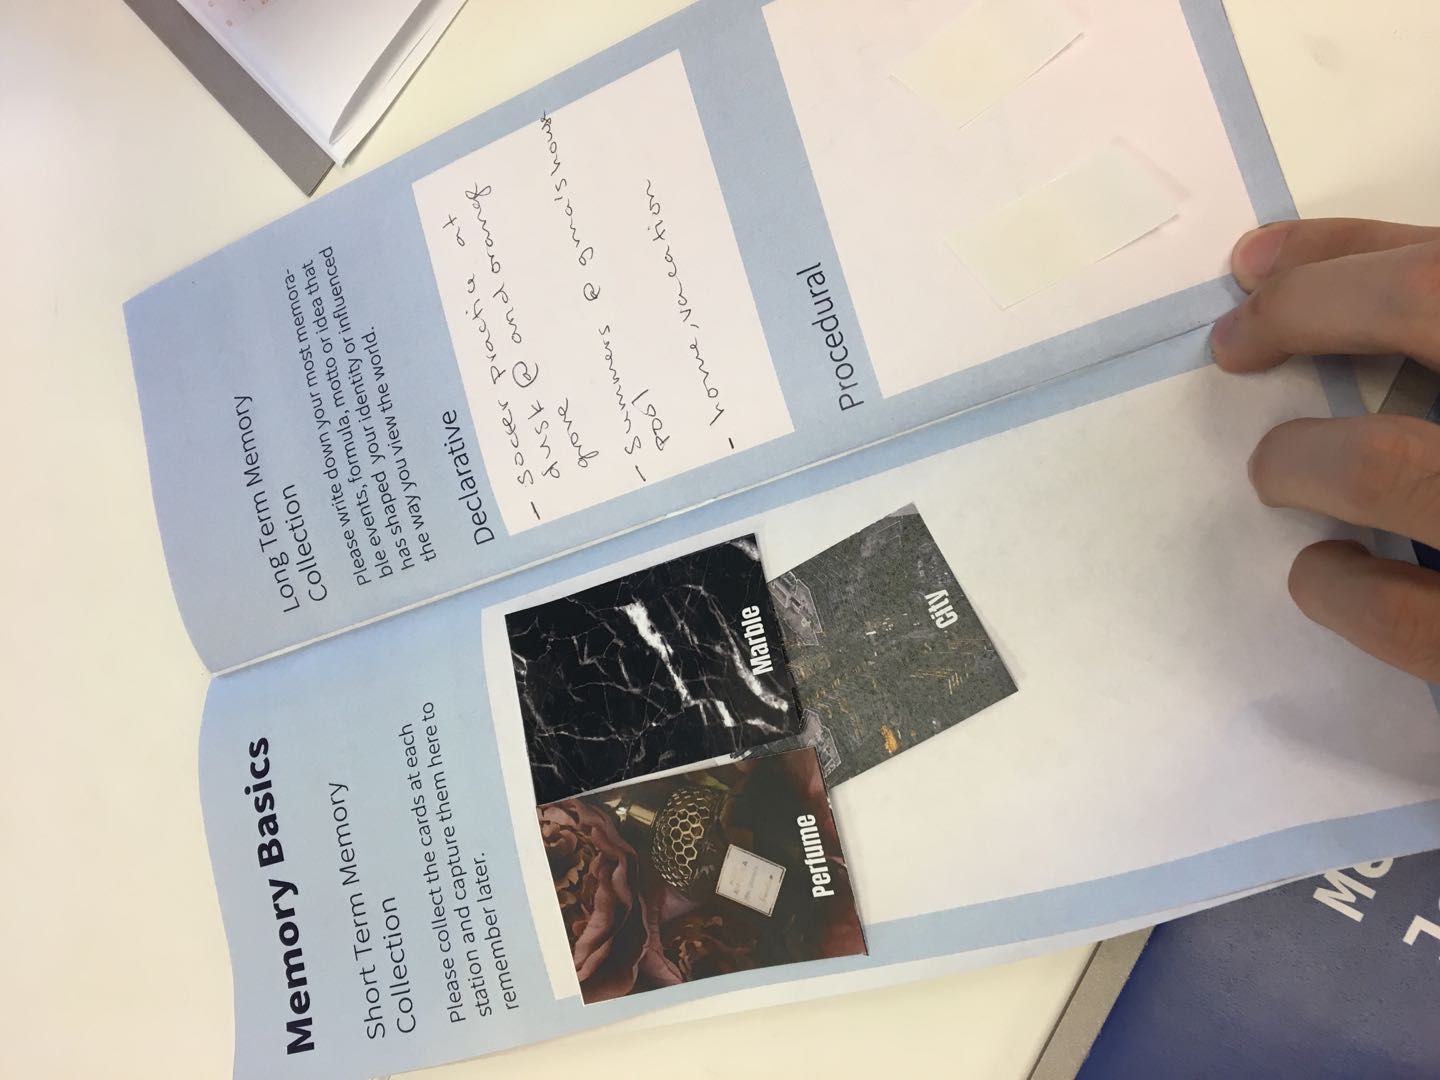 Memory Basics
Short Term Memory
Collection
Please collect the cards at each
station and capture them here to
remember later.
Perfume
Marble
City
Long Term Memory
Collection
Please write down your most memora-
ble events, formula, motto or idea that
has shaped your identity or influenced
the way you view the world.
Declarative
- soccer practice at
dusk @ and orange
grove
- summers @ gma's house
pool
- home, vacation
Procedural